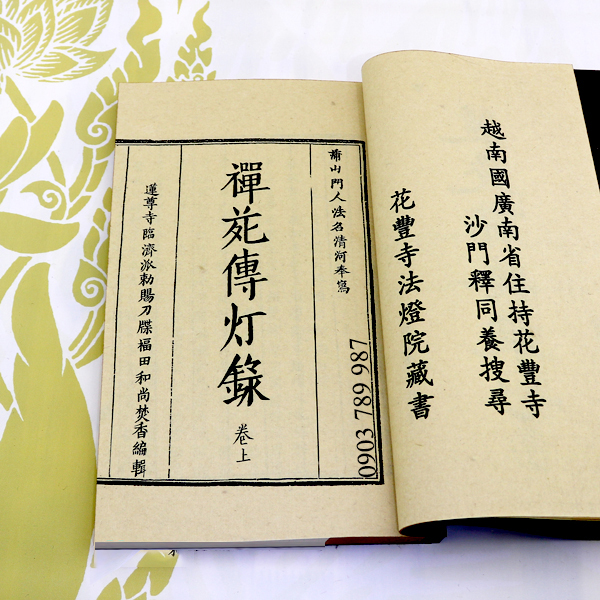 越南國廣南省住持花豐寺
沙門釋同養搜尋
花豐寺法燈院藏書
山門人法名清河奉寫
禪苑傳灯錄
卷上
蓮尊寺臨濟派勅賜刀牒福田和尚焚香編輯
0903 789 987